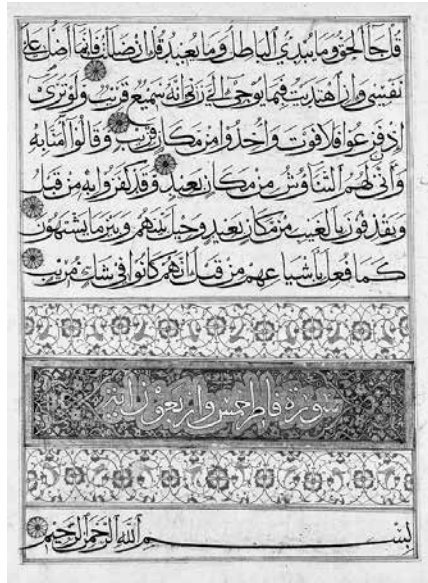 قل جآ الحق وما يبدي الباطل وما يعيد قل ان ضللت فانما اضل على
نفسي وان اهتديت فبما يوحى الي ربي انه سميع قريب ولو ترى
اذ فزعوا فلا فوت واخذوا من مكان قريب وقالوا آمنا به
وانى لهم التناوش من مكان بعيد وقد كفروا به من قبل
ويقذفون بالغيب من مكان بعيد وحيل بينهم وبين ما يشتهون
كما فعل باشياعهم من قبل انهم كانوا في شك مريب
سورة فاطر خمس واربعون آية
بسم الله الرحمن الرحيم